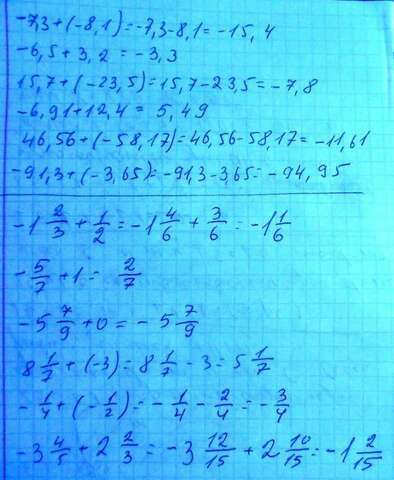 -7,3+(-8,1)=-7,3-8,1=-15,4
-6,5+3,2=-3,3
15,7+(-23,5)=15,7-23,5=-7,8
-6,91+12,4=5,49
46,56+(-58,17)=46,56-58,17=-11,61
-91,3+(-3,65)=-91,3-3,65=-94,95
-1 2/3+1/2=-1 4/6+3/6=-1 1/6
-5/7+1=2/7
-5 7/9+0=-5 7/9
8 1/7+(-3)=8 1/7-3=5 1/7
-1/4+(-1/2)=-1/4-2/4=-3/4
-3 4/5+2 2/3=-3 12/15+2 10/15=-1 2/15